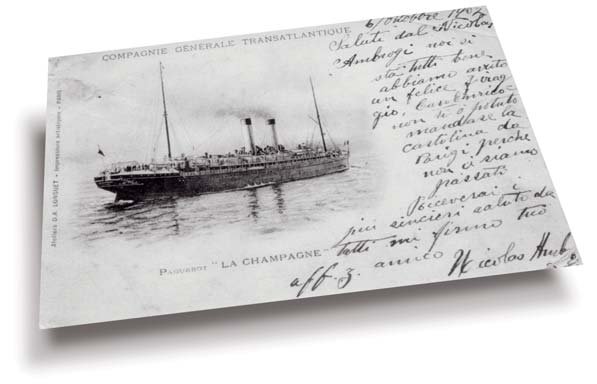 6/Ottobre 1902
COMPAGNIE GÉNÉRALE TRANSATLANTIQUE
Saluti dal Nicolas
Ambrogi noi si
sta tutti bene
abbiamo avuto
un felice viag
gio, Caro Enrico
non ti ò potuto
mandare la
cartolina da
Parigi perche
non ci siamo
passati.
Riceverai i
più sinceri saluti da
tutti mi firmo tuo
aff. amico Nicolas
PAQUEBOT "LA CHAMPAGNE"
Ateliers D.A. LONGUET - Impressions artistiques - PARIS